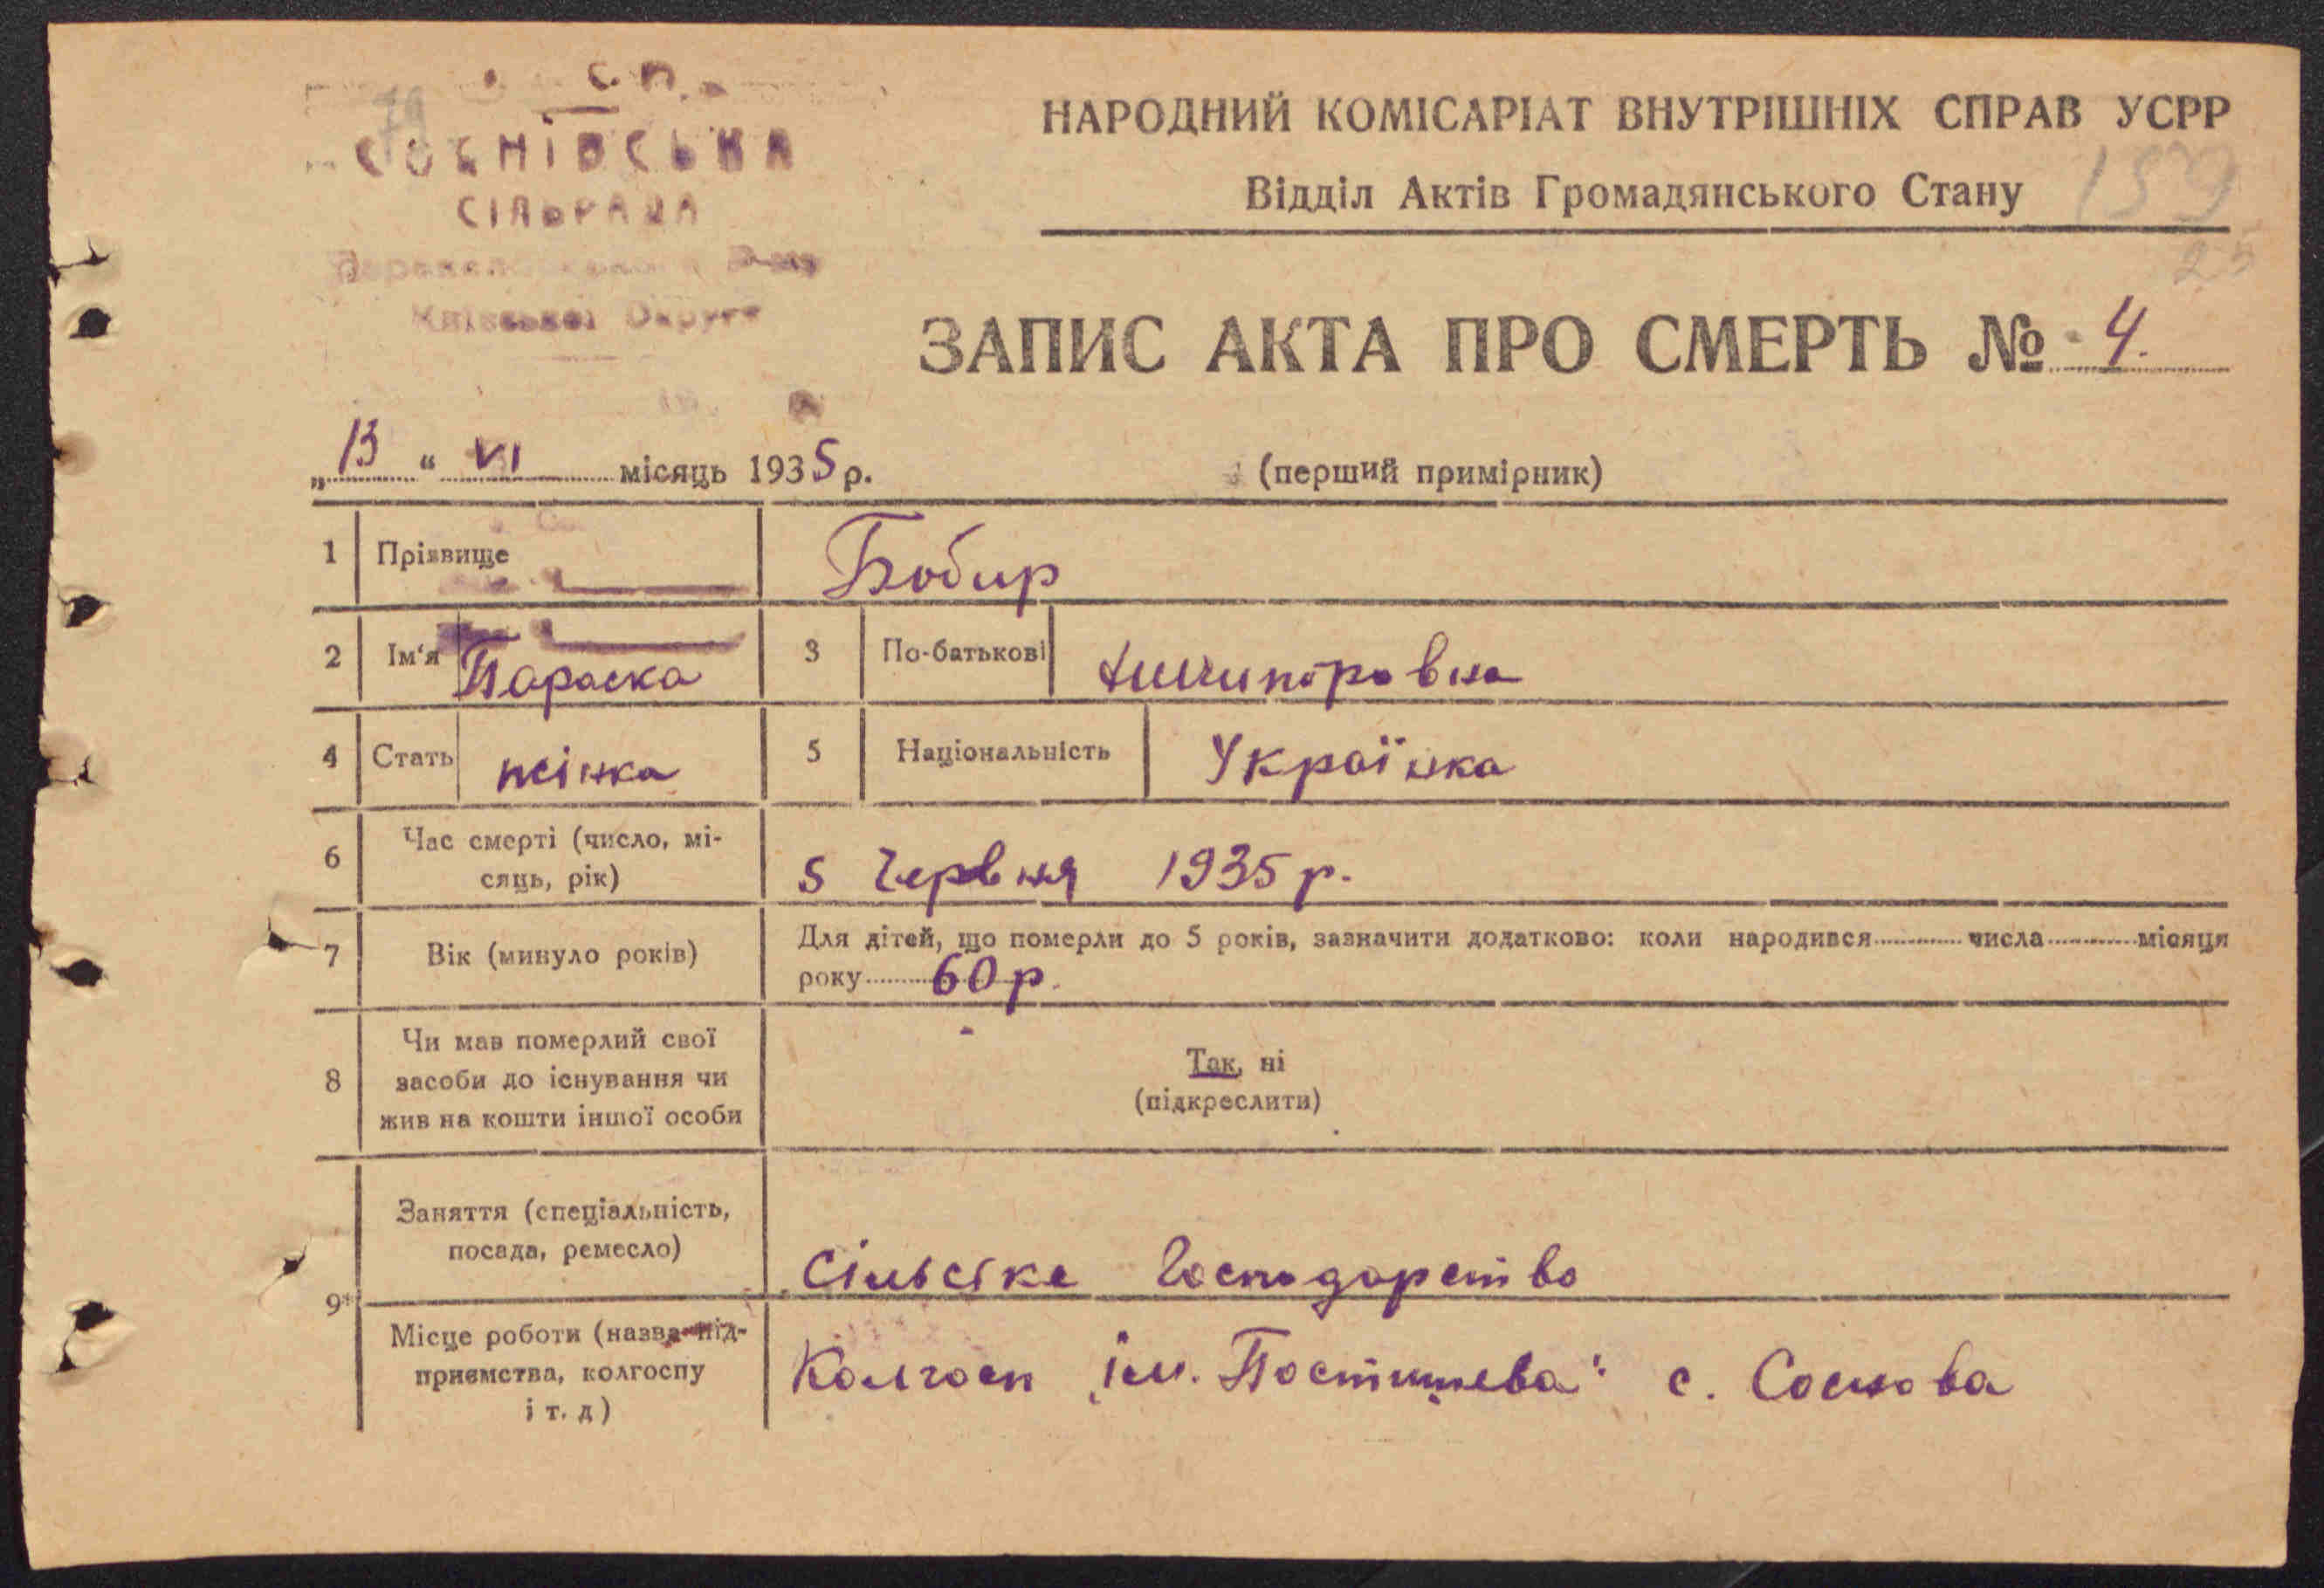 С. П.
СОСНІВСЬКА
СІЛЬРАДА
Київської Округи
79
НАРОДНИЙ КОМІСАРІАТ ВНУТРІШНІХ СПРАВ УСРР
Відділ Актів Громадянського Стану
159
25
ЗАПИС АКТА ПРО СМЕРТЬ № 4.
„13“ VI місяць 1935 р.
(перший примірник)
1 Прізвище Бобир
2 Ім‘я Параска 3 По-батькові Ничипоровна
4 Стать жінка 5 Національність Українка
6 Час смерті (число, мі-
сяць, рік) 5 Червня 1935 р.
7 Вік (минуло років) Для дітей, що померли до 5 років, зазначити додатково: коли народився числа місяця
року 60 р.
8 Чи мав померлий свої
засоби до існування чи
жив на кошти іншої особи
Так, ні
(підкреслити)
9* Заняття (спеціальність,
посада, ремесло) Сільське Господарство
Місце роботи (назва під-
приємства, колгоспу
і т. д) Колгосп „ім. Постишева“ с. Соснова